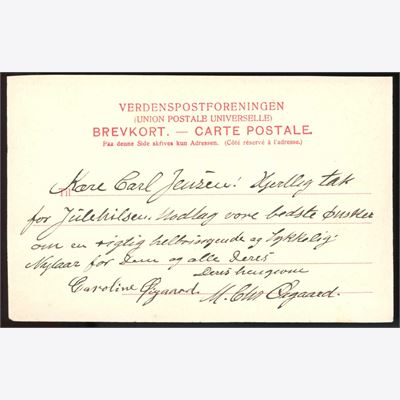 VERDENSPOSTFORENINGEN
(UNION POSTALE UNIVERSELLE)
BREVKORT. — CARTE POSTALE.
Paa denne Side skrives kun Adressen. (Côté réservé à l'adresse.)
Til
Kære Carl Jensen! Hjertlig tak
for Julehilsen. Modtag vore bedste Ønsker
om en rigtig velsignende og lykkelig
Nytaar for Dem og alle Deres
Deres hengivne
Caroline Øsgaard. M. Chr Øsgaard.